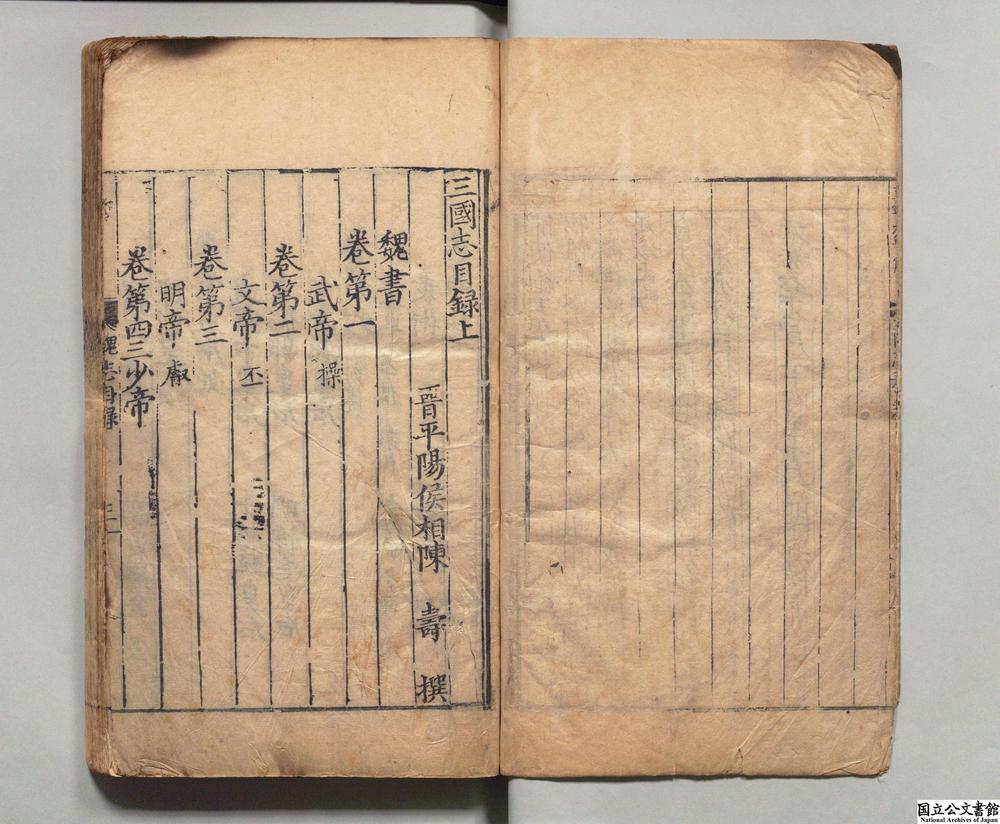 三國志目録上
晉平陽侯相陳 壽 撰
魏書
卷第一
武帝 操
卷第二
文帝 丕
卷第三
明帝 叡
卷第四三少帝
魏志目録
国立公文書館
National Archives of Japan